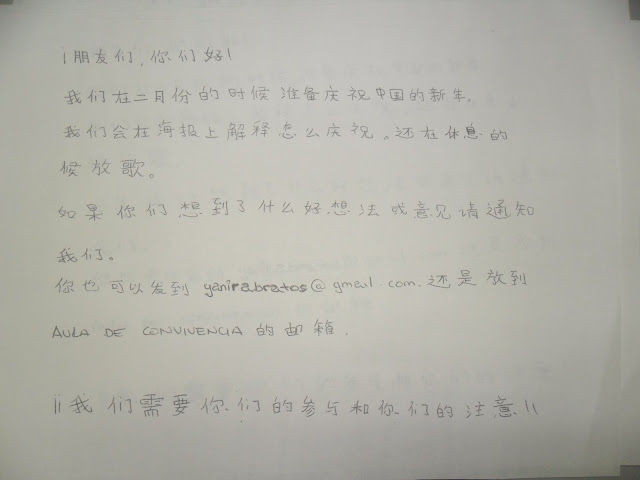 ¡朋友们，你们好!
我们在二月份的时候准备庆祝中国的新年。
我们会在海报上解释怎么庆祝。还在休息的
候放歌。
如果你们想到了什么好想法或意见请通知
我们。
你也可以发到 yanirabratos@gmail.com. 还是放到
AULA DE CONVIVENCIA 的邮箱.
¡¡我们需要你们的参与和你们的注意!!